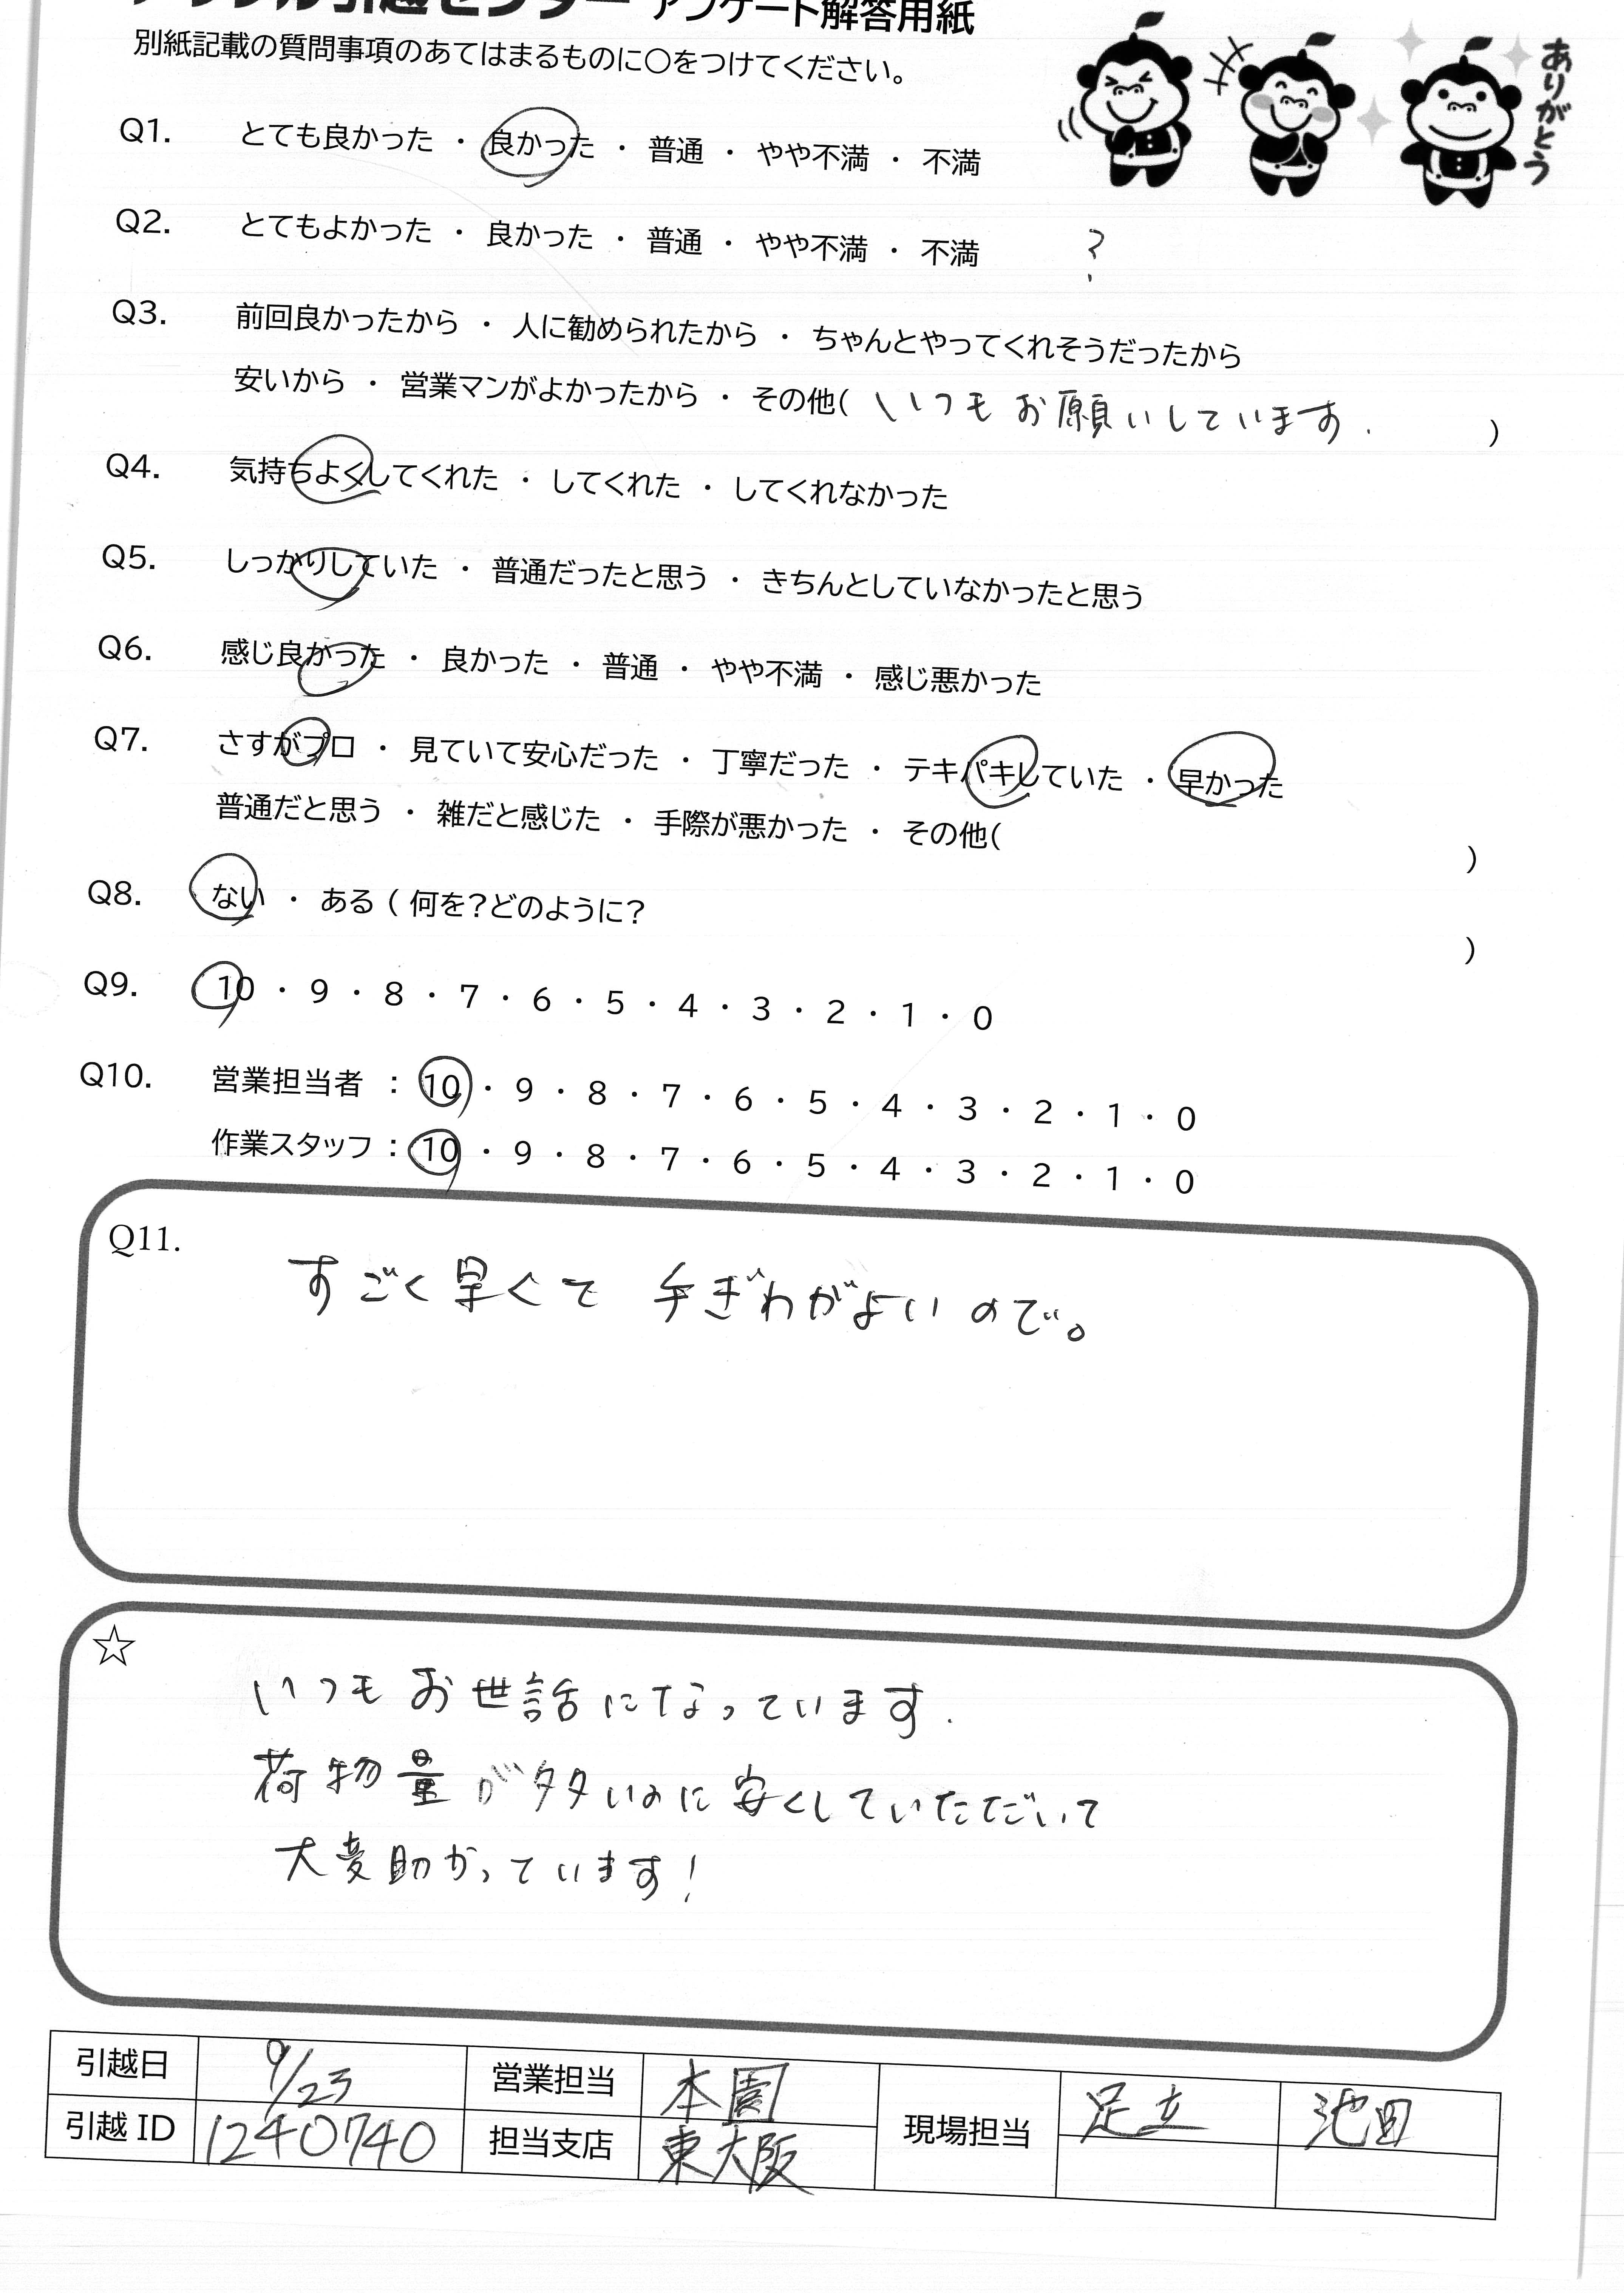 アップル引越センター アンケート解答用紙
別紙記載の質問事項のあてはまるものに〇をつけてください。
ありがとう
Q1. とても良かった ・ 良かった ・ 普通 ・ やや不満 ・ 不満
Q2. とてもよかった ・ 良かった ・ 普通 ・ やや不満 ・ 不満 ?
Q3. 前回良かったから ・ 人に勧められたから ・ ちゃんとやってくれそうだったから
安いから ・ 営業マンがよかったから ・ その他( いつもお願いしています. )
Q4. 気持ちよくしてくれた ・ してくれた ・ してくれなかった
Q5. しっかりしていた ・ 普通だったと思う ・ きちんとしていなかったと思う
Q6. 感じ良かった ・ 良かった ・ 普通 ・ やや不満 ・ 感じ悪かった
Q7. さすがプロ ・ 見ていて安心だった ・ 丁寧だった ・ テキパキしていた ・ 早かった
普通だと思う ・ 雑だと感じた ・ 手際が悪かった ・ その他( )
Q8. ない ・ ある ( 何を?どのように? )
Q9. 10 ・ 9 ・ 8 ・ 7 ・ 6 ・ 5 ・ 4 ・ 3 ・ 2 ・ 1 ・ 0
Q10. 営業担当者 : 10 ・ 9 ・ 8 ・ 7 ・ 6 ・ 5 ・ 4 ・ 3 ・ 2 ・ 1 ・ 0
作業スタッフ : 10 ・ 9 ・ 8 ・ 7 ・ 6 ・ 5 ・ 4 ・ 3 ・ 2 ・ 1 ・ 0
Q11.
すごく早くて 手ぎわがよいので。
☆
いつもお世話になっています.
荷物量が多いのに安くしていただいて
大変助かっています!
引越日 9/23 営業担当 本園 現場担当 足立 池田
引越 ID 1240740 担当支店 東大阪